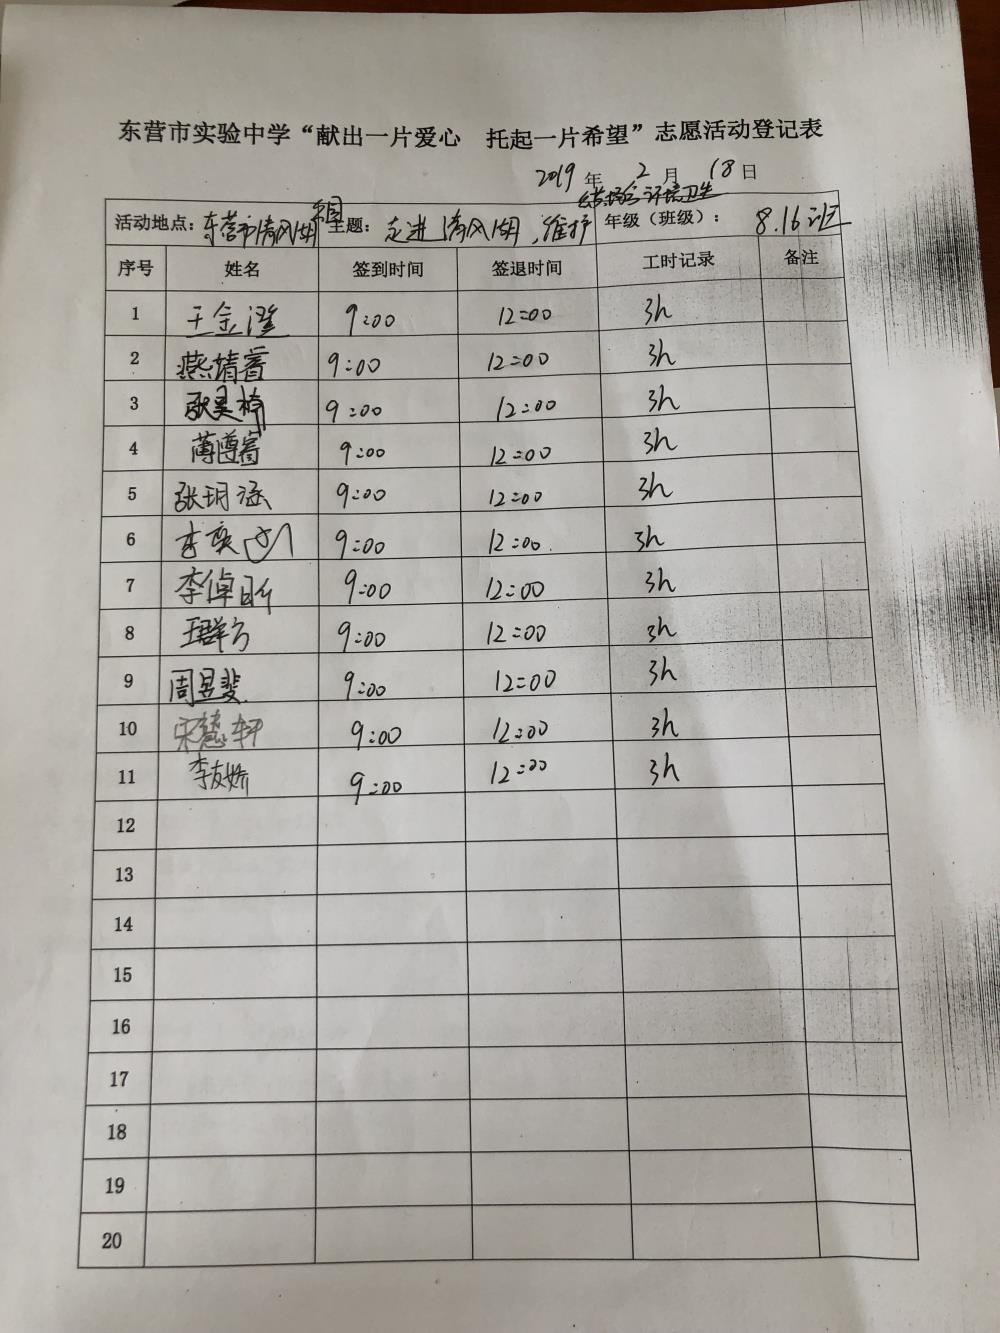 东营市实验中学“献出一片爱心 托起一片希望”志愿活动登记表
2019 年 2 月 18 日
活动地点: 东营市清风湖公园 主题: 走进清风湖,维护 环境卫生 年级(班级): 8.16班
序号 姓名 签到时间 签退时间 工时记录 备注
1 王金滢 9:00 12:00 3h
2 燕靖蓉 9:00 12:00 3h
3 9:00 12:00 3h
4 薄遵睿 9:00 12:00 3h
5 张玥涵 9:00 12:00 3h
6 李奕 9:00 12:00 3h
7 李倬昕 9:00 12:00 3h
8 9:00 12:00 3h
9 周昱斐 9:00 12:00 3h
10 宋慧轩 9:00 12:00 3h
11 李友娇 9:00 12:00 3h
12
13
14
15
16
17
18
19
20